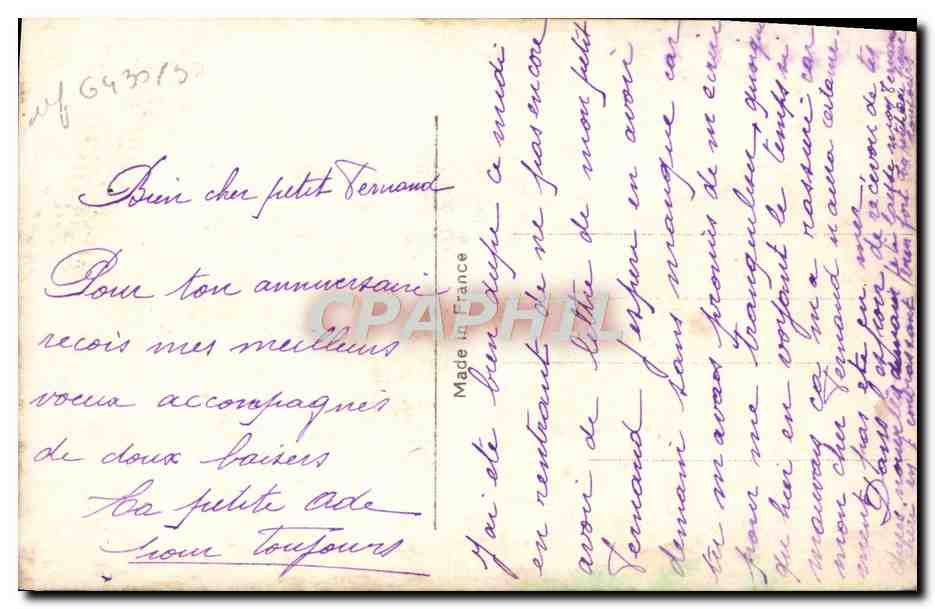 Bien cher petit Fernand
Pour ton anniversaire
recois mes meilleurs
voeux accompagnés
de doux baisers
Ta petite Ade
pour Toujours
Made in France
CPAPHIL
J'ai été bien dupé ce midi
en rentrant de ne pas encore
avoir de lettre de mon petit
Fernand j'espere en avoir
demain sans manque car
tu m'avais promis de m'ecrire
pour me tranquiliser, quoique
qu hier en voyant le temps si
mauvais ça m'a rassuré car
mon cher Fernand n'aura certaine-
ment pas été en mer
Dans l'espoir de recevoir de tes